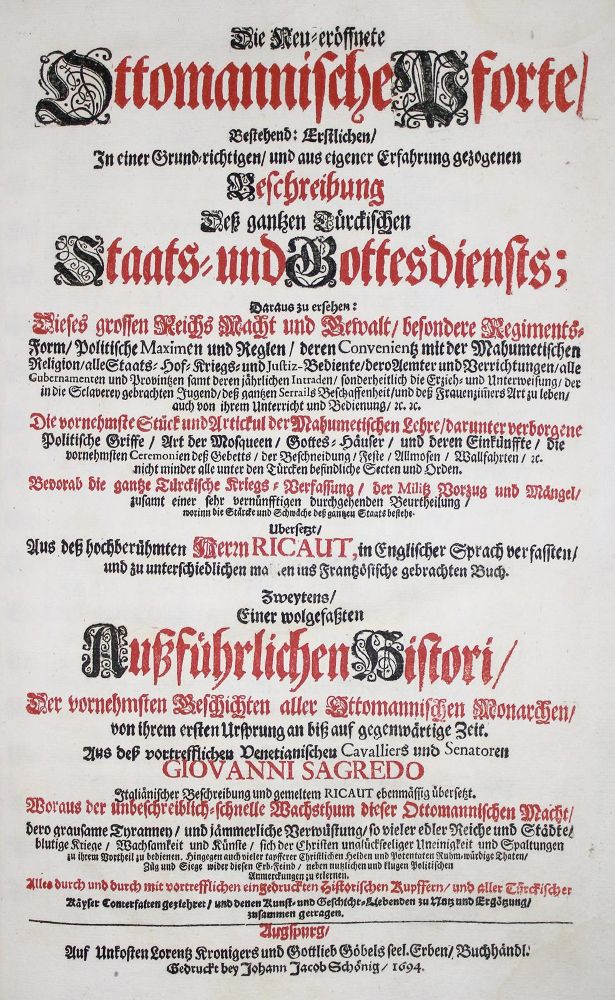 Die Neu-eröffnete
Ottomannische Pforte/
Bestehend: Erstlichen/
In einer Grund-richtigen/ und aus eigener Erfahrung gezogenen
Beschreibung
Deß gantzen Türckischen
Staats- und Gottesdiensts;
Daraus zu ersehen:
Dieses grossen Reichs Macht und Gewalt/ besondere Regiments-
Form/ Politische Maximen und Reglen/ deren Convenientz mit der Mahumetischen
Religion/ alle Staats- Hof- Kriegs- und Justiz-Bediente/ dero Aemter und Verrichtungen/ alle
Gubernamenten und Provintzen samt deren jährlichen Intraden/ sonderheitlich die Erzieh- und Unterweisung/ der
in die Sclaverey gebrachten Jugend/ deß gantzen Serrails Beschaffenheit/ und deß Frauenzim̃ers Art zu leben/
auch von ihrem Unterricht und Bedienung/ ꝛc. ꝛc.
Die vornehmste Stück und Artickul der Mahumetischen Lehre/ darunter verborgene
Politische Griffe/ Art der Mosqueen/ Gottes-Häuser/ und deren Einkünffte/ die
vornehmsten Ceremonien deß Gebetts/ der Beschneidung/ Feste/ Allmosen/ Wallfahrten/ ꝛc.
nicht minder alle unter den Türcken befindliche Secten und Orden.
Bevorab die gantze Türckische Kriegs-Verfassung/ der Militz Vorzug und Mängel/
zusamt einer sehr vernünfftigen durchgehenden Beurtheilung/
worinn die Stärcke und Schwäche deß gantzen Staats bestehe.
Ubersetzt/
Aus deß hochberühmten Herrn RICAUT, in Englischer Sprach verfassten/
und zu unterschiedlichen ma en ins Frantzösische gebrachten Buch.
Zweytens/
Einer wolgefaßten
Außführlichen Histori/
Der vornehmsten Geschichten aller Ottomannischen Monarchen/
von ihrem ersten Ursprung an biß auf gegenwärtige Zeit.
Aus deß vortrefflichen Venetianischen Cavalliers und Senatoren
GIOVANNI SAGREDO
Italiänischer Beschreibung und gemeltem RICAUT ebenmässig übersetzt.
Woraus der unbeschreiblich-schnelle Wachsthum dieser Ottomannischen Macht/
dero grausame Tyranney/ und jämmerliche Verwüstung/ so vieler edler Reiche und Städte/
blutige Kriege/ Wachsamkeit und Künste/ sich der Christen unglückseeliger Uneinigkeit und Spaltungen
zu ihrem Vortheil zu bedienen. Hingegen auch vieler tapfferer Christlichen Helden und Potentaten Ruhm-würdige Thaten/
Züg und Siege wider diesen Erb-Feind/ neben nutzlichen und klugen Politischen
Anmerckungen zu erlernen.
Alles durch und durch mit vortrefflichen eingedruckten Historischen Kupffern/ und aller Türckischer
Käyser Conterfaiten gezieret/ und denen Kunst- und Geschicht-Liebenden zu Nutz und Ergötzung/
zusammen getragen.
Augspurg/
Auf Unkosten Lorentz Kronigers und Gottlieb Göbels seel. Erben/ Buchhändl.
Gedruckt bey Johann Jacob Schönig/ 1694.